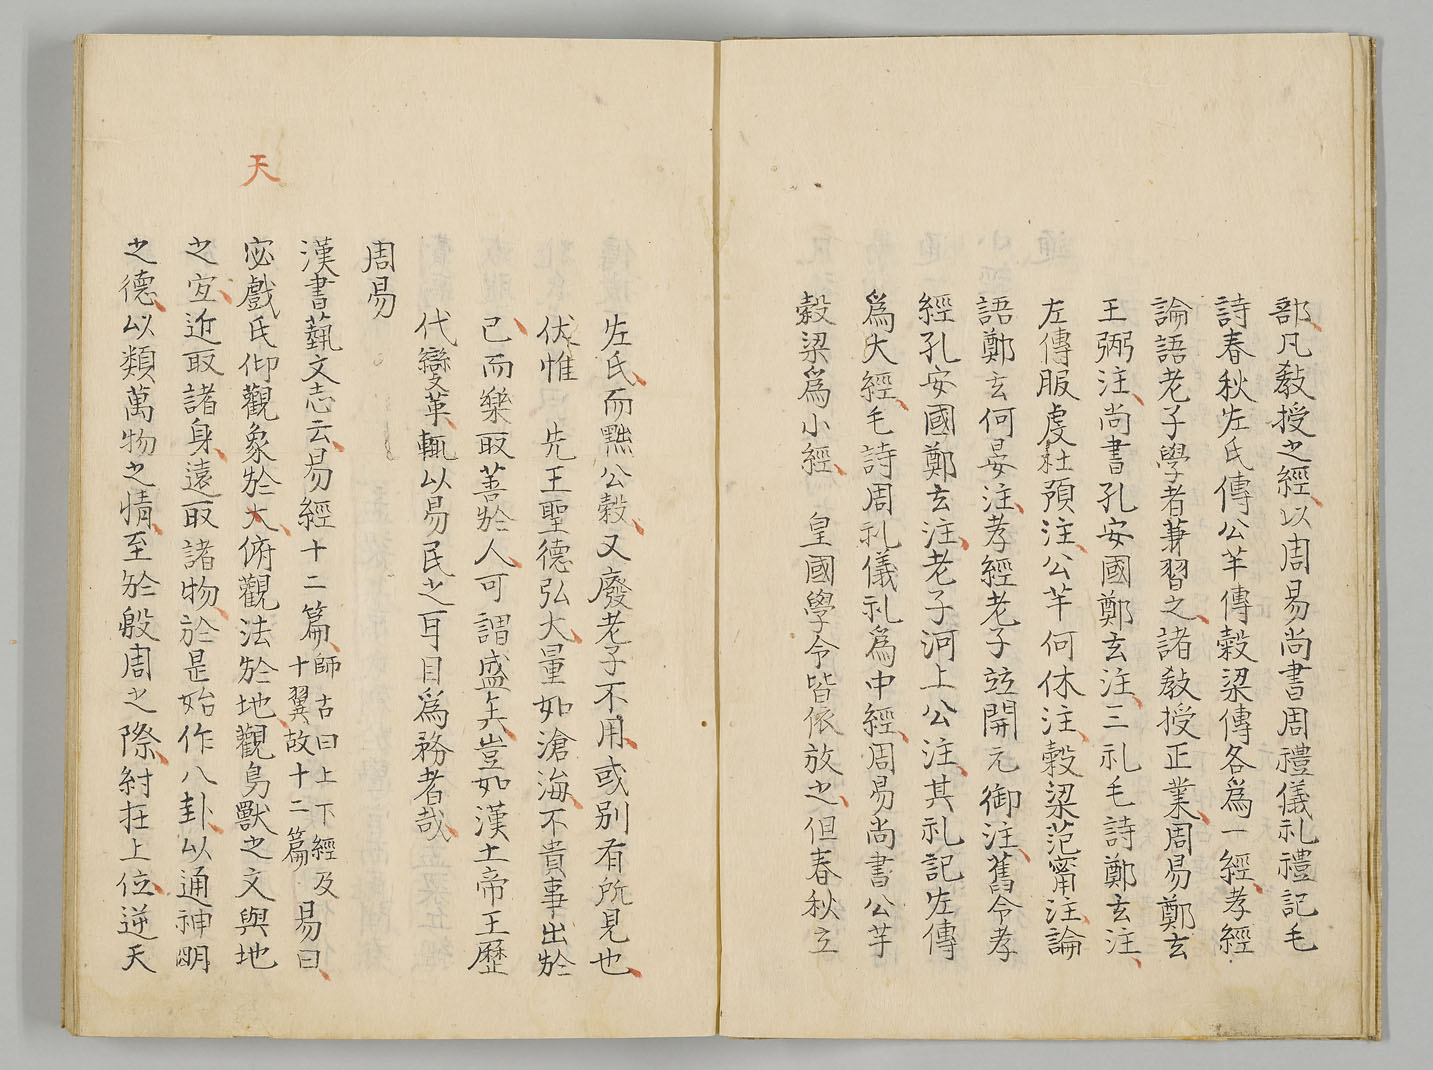 部凡敎授之經以周易尚書周禮儀礼禮記毛
詩春秋左氏傳公羊傳穀梁傳各爲一經孝經
論語老子學者兼習之諸敎授正業周易鄭玄
王弼注尚書孔安國鄭玄注三礼毛詩鄭玄注
左傳服虔杜預注公羊何休注穀梁范甯注論
語鄭玄何晏注孝經老子竝開元御注舊令孝
經孔安國鄭玄注老子河上公注其礼記左傳
爲大經毛詩周礼儀礼爲中經周易尚書公羊
穀梁爲小經 皇國學令皆依放之但春秋立
左氏而黜公穀又廢老子不用或別有所見也
伏惟 先王聖德弘大量如滄海不貴事出於
己而樂取善於人可謂盛矣豈如漢土帝王歷
代變革輒以易民之耳目爲務者哉
周易
漢書藝文志云易經十二篇師古曰上下經及十翼故十二篇易曰
天
宓戲氏仰觀象於大俯觀法於地觀鳥獸之文與地
之宜近取諸身遠取諸物於是始作八卦以通神明
之德以類萬物之情至於殷周之際紂在上位逆天